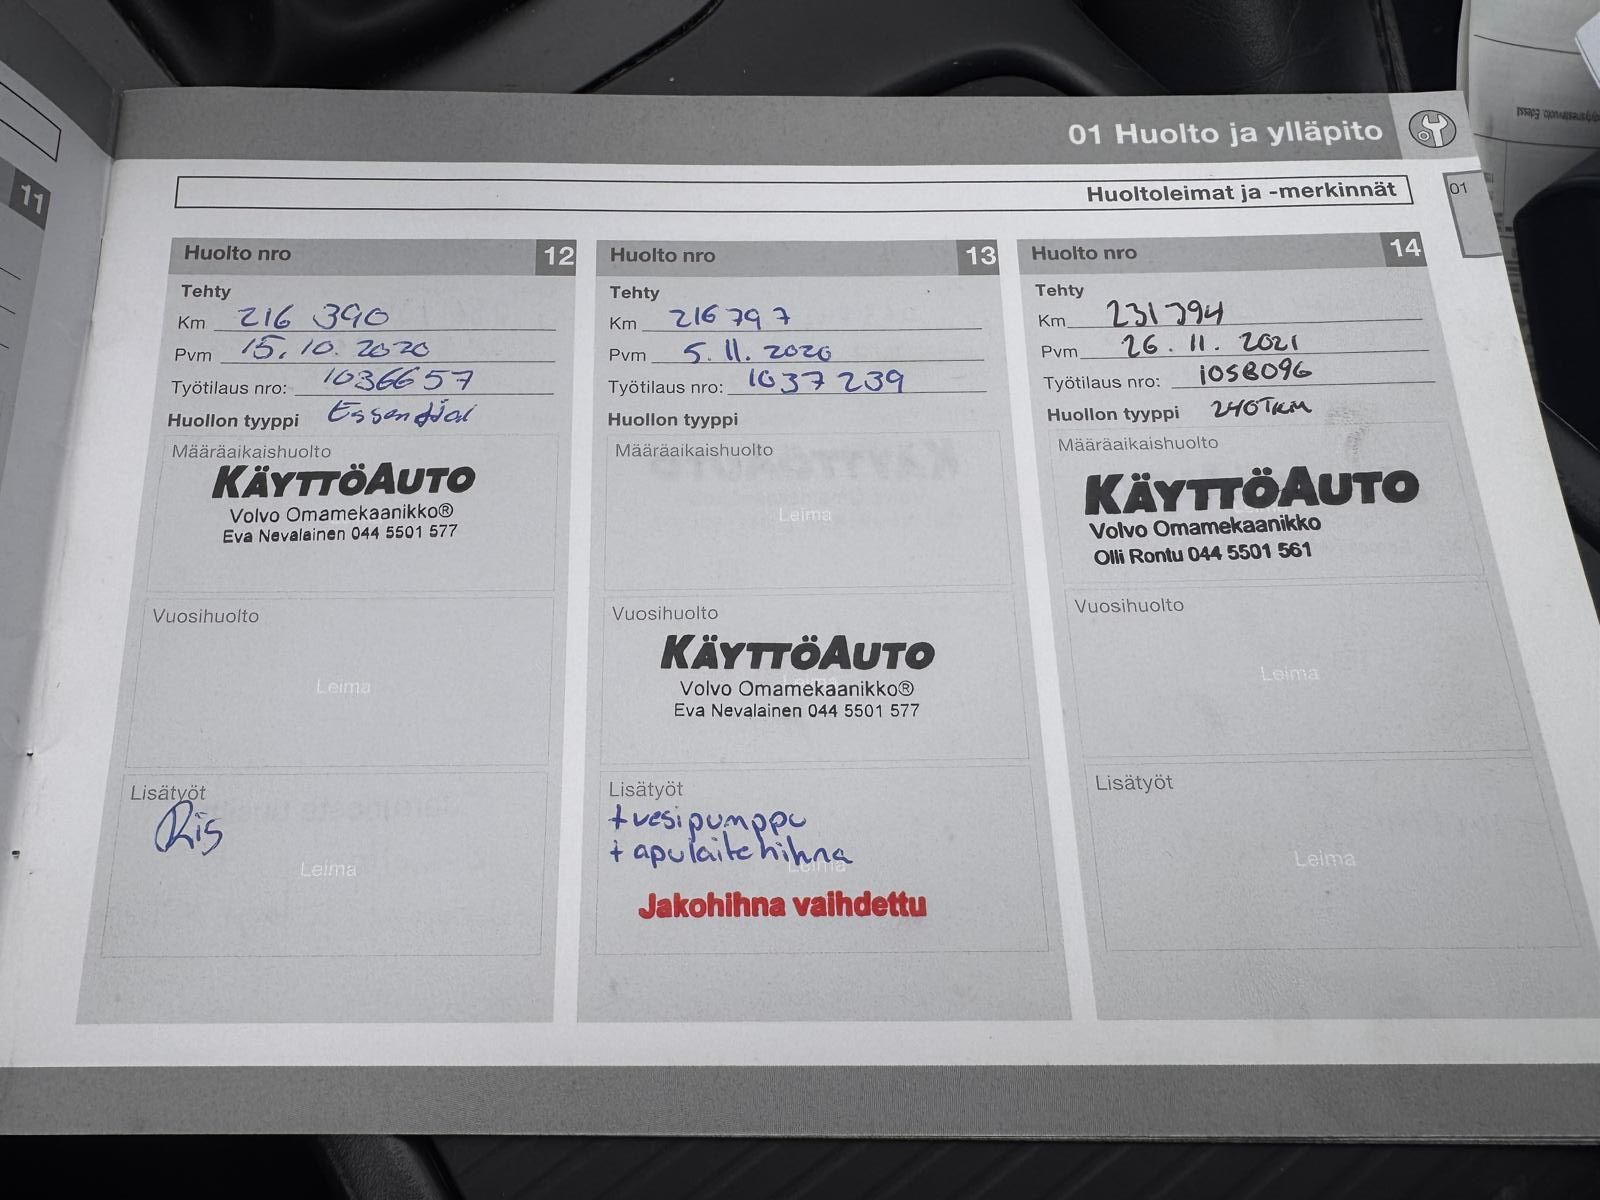 01 Huolto ja ylläpito
Huoltoleimat ja -merkinnät
01
11
Huolto nro 12
Tehty
Km 216 390
Pvm 15.10.2020
Työtilaus nro: 1036657
Huollon tyyppi Essential
Määräaikaishuolto
KÄYTTÖAUTO
Volvo Omamekaanikko®
Eva Nevalainen 044 5501 577
Vuosihuolto
Leima
Lisätyöt
Leima
Huolto nro 13
Tehty
Km 216 797
Pvm 5.11.2020
Työtilaus nro: 1037239
Huollon tyyppi
Määräaikaishuolto
Leima
Vuosihuolto
KÄYTTÖAUTO
Volvo Omamekaanikko®
Eva Nevalainen 044 5501 577
Lisätyöt
+vesipumppu
+ apulaitehihna
Leima
Jakohihna vaihdettu
Huolto nro 14
Tehty
Km 231394
Pvm 26.11.2021
Työtilaus nro: 1058096
Huollon tyyppi 240TKM
Määräaikaishuolto
KÄYTTÖAUTO
Volvo Omamekaanikko
Olli Rontu 044 5501 561
Vuosihuolto
Leima
Lisätyöt
Leima